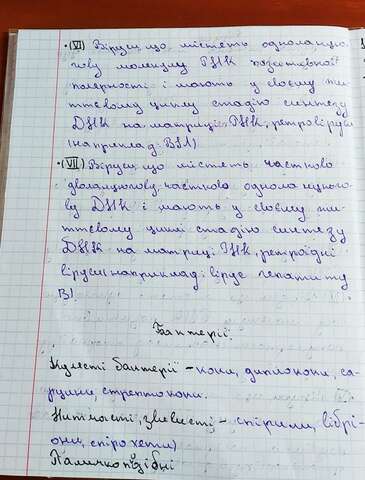 • (VI) Віруси, що містять одноланцю-
гову молекулу РНК позитивної
полярності і мають у своєму жи-
ттєвому циклі стадію синтезу
ДНК на матриці РНК, ретровіруси
(наприклад ВІЛ)
• (VII) Віруси, що містять частково
дволанцюгову, частково одноланцюго-
ву ДНК і мають у своєму жи-
ттєвому циклі стадію синтезу
ДНК на матриці РНК, ретроїдні
віруси (наприклад: вірус гепатиту
В)
Бактерії.
Кулясті бактерії - коки, диплококи, са-
рцини, стрептококи.
Нитчасті, звивисті - спірили, вібрі-
они, спірохети)
Паличкоподібні